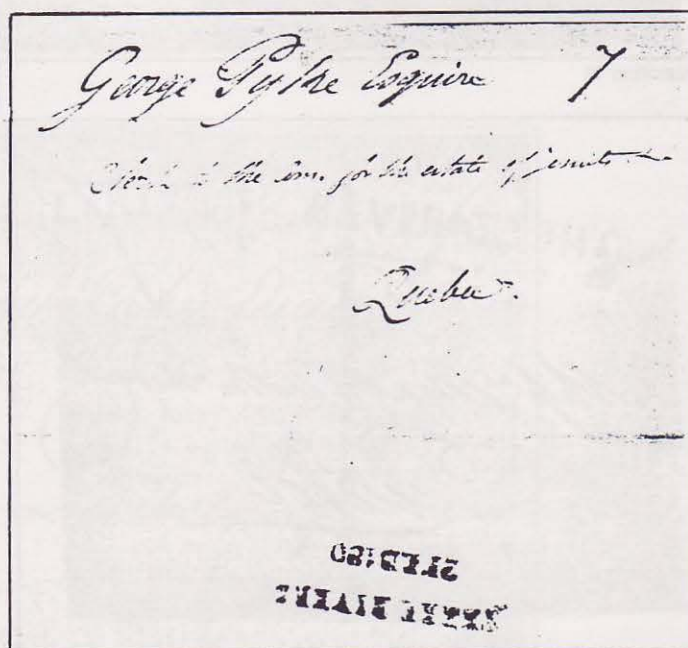 George Pyke Esquire 7
Clerk to the Com. for the estate of jesuits
Quebec.
THREE RIVERS